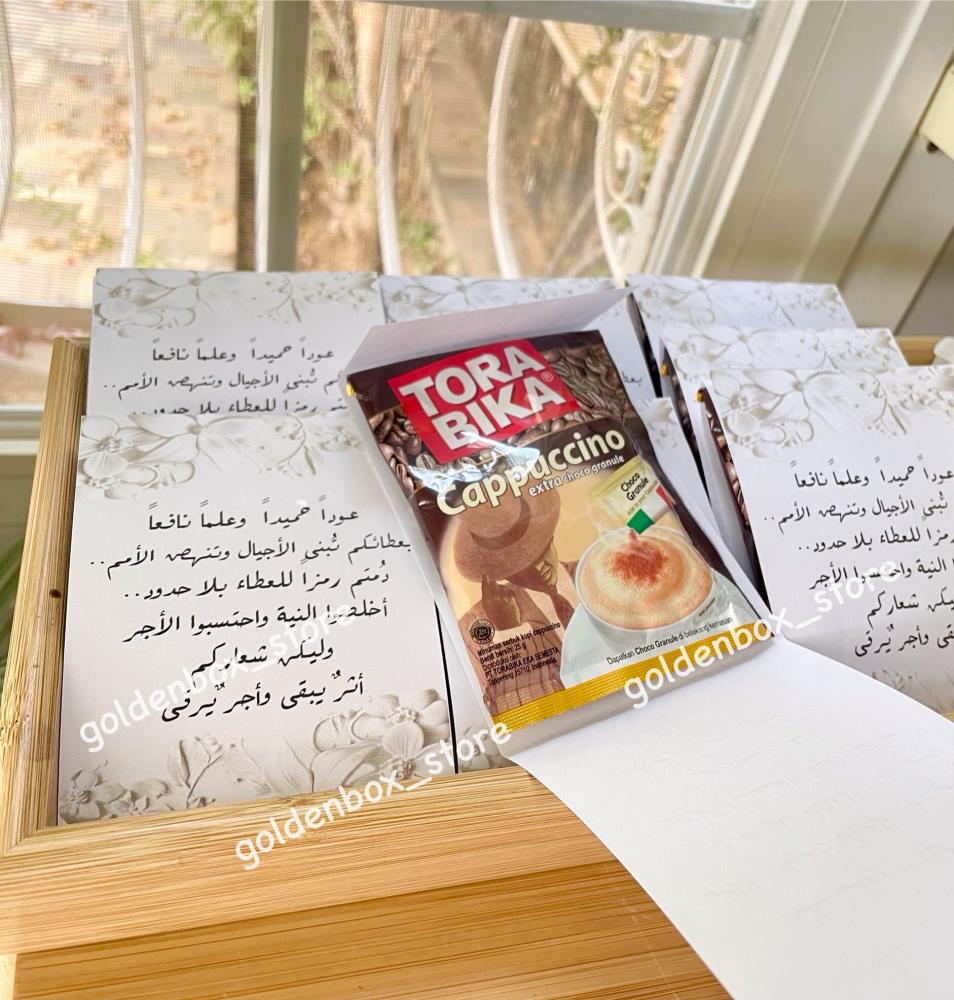 عوداً حميداً وعلماً نافعاً
تُبنى الأجيال وتنهض الأمم..
رمزاً للعطاء بلا حدود..
عوداً حميداً وعلماً نافعاً
بعطائكم تُبنى الأجيال وتنهض الأمم..
دُمتم رمزاً للعطاء بلا حدود..
أخلصوا النية واحتسبوا الأجر
وليكن شعاركم
أثرٌ يبقى وأجرٌ يرقى
TORA
BIKA®
Cappuccino
extra choco granule
Choco
Granule
Minuman serbuk kopi cappuccino
Berat bersih: 25 g
Diproduksi oleh:
PT TORABIKA EKA SEMESTA
Tangerang 15710, Indonesia
Dapatkan Choco Granule di belakang kemasan
عوداً حميداً وعلماً نافعاً
تُبنى الأجيال وتنهض الأمم..
رمزاً للعطاء بلا حدود..
النية واحتسبوا الأجر
وليكن شعاركم
يبقى وأجرٌ يرقى
goldenbox_store
goldenbox_store
goldenbox_store
goldenbox_store